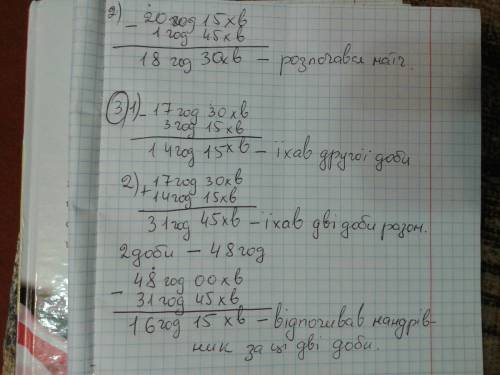 2) - 20 год 15 хв
1 год 45 хв
18 год 30 хв - розпочався
3) 1) - 17 год 30 хв
3 год 15 хв
14 год 15 хв - їхав другої доби
2) + 17 год 30 хв
14 год 15 хв
31 год 45 хв - їхав дві доби разом.
2 доби - 48 год
- 48 год 00 хв
31 год 45 хв
16 год 15 хв - відпочивав мандрів-
ник за ці дві доби.